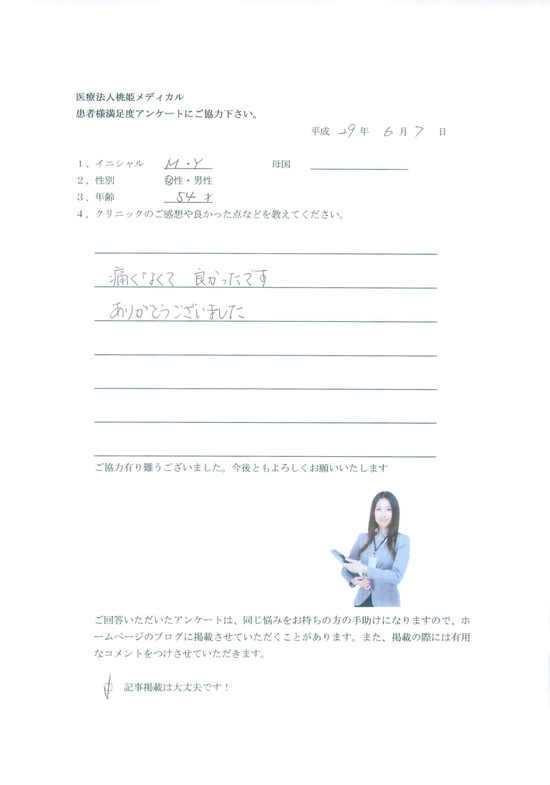 医療法人桃姫メディカル
患者様満足度アンケートにご協力下さい。
平成 29 年 6 月 7 日
1、イニシャル M・Y 母国
2、性別 女性・男性
3、年齢 54 才
4、クリニックのご感想や良かった点などを教えてください。
痛くなくて 良かったです
ありがとうございました
ご協力有り難うございました。今後ともよろしくお願いいたします
ご回答いただいたアンケートは、同じ悩みをお持ちの方の手助けになりますので、ホ
ームページのブログに掲載させていただくことがあります。また、掲載の際には有用
なコメントをつけさせていただきます。
記事掲載は大丈夫です！